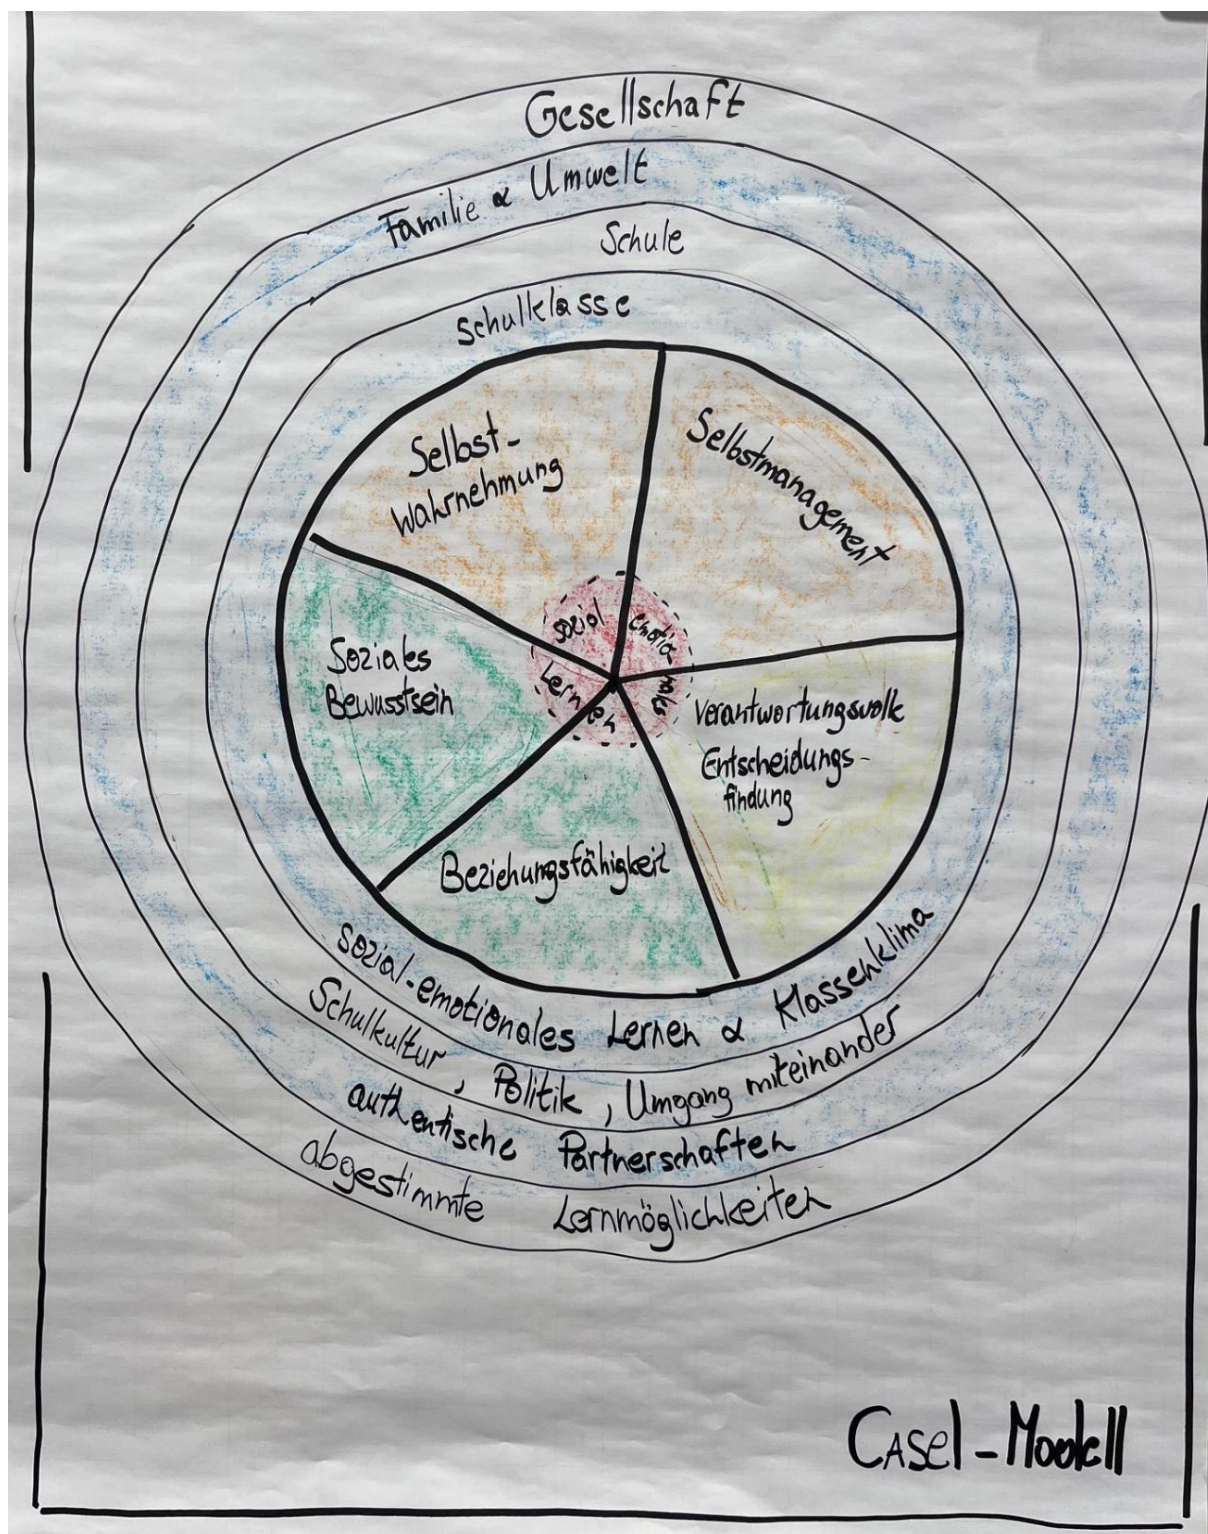 Gesellschaft
Familie & Umwelt
Schule
Schulklasse
Selbst-
wahrnehmung
Selbstmanagement
sozial
emotio
nales
Lern
en
Soziales
Bewusstsein
Verantwortungsvolle
Entscheidungs-
findung
Beziehungsfähigkeit
sozial-emotionales Lernen & Klassenklima
Schulkultur, Politik, Umgang miteinander
authentische Partnerschaften
abgestimmte Lernmöglichkeiten
CASEl-Modell